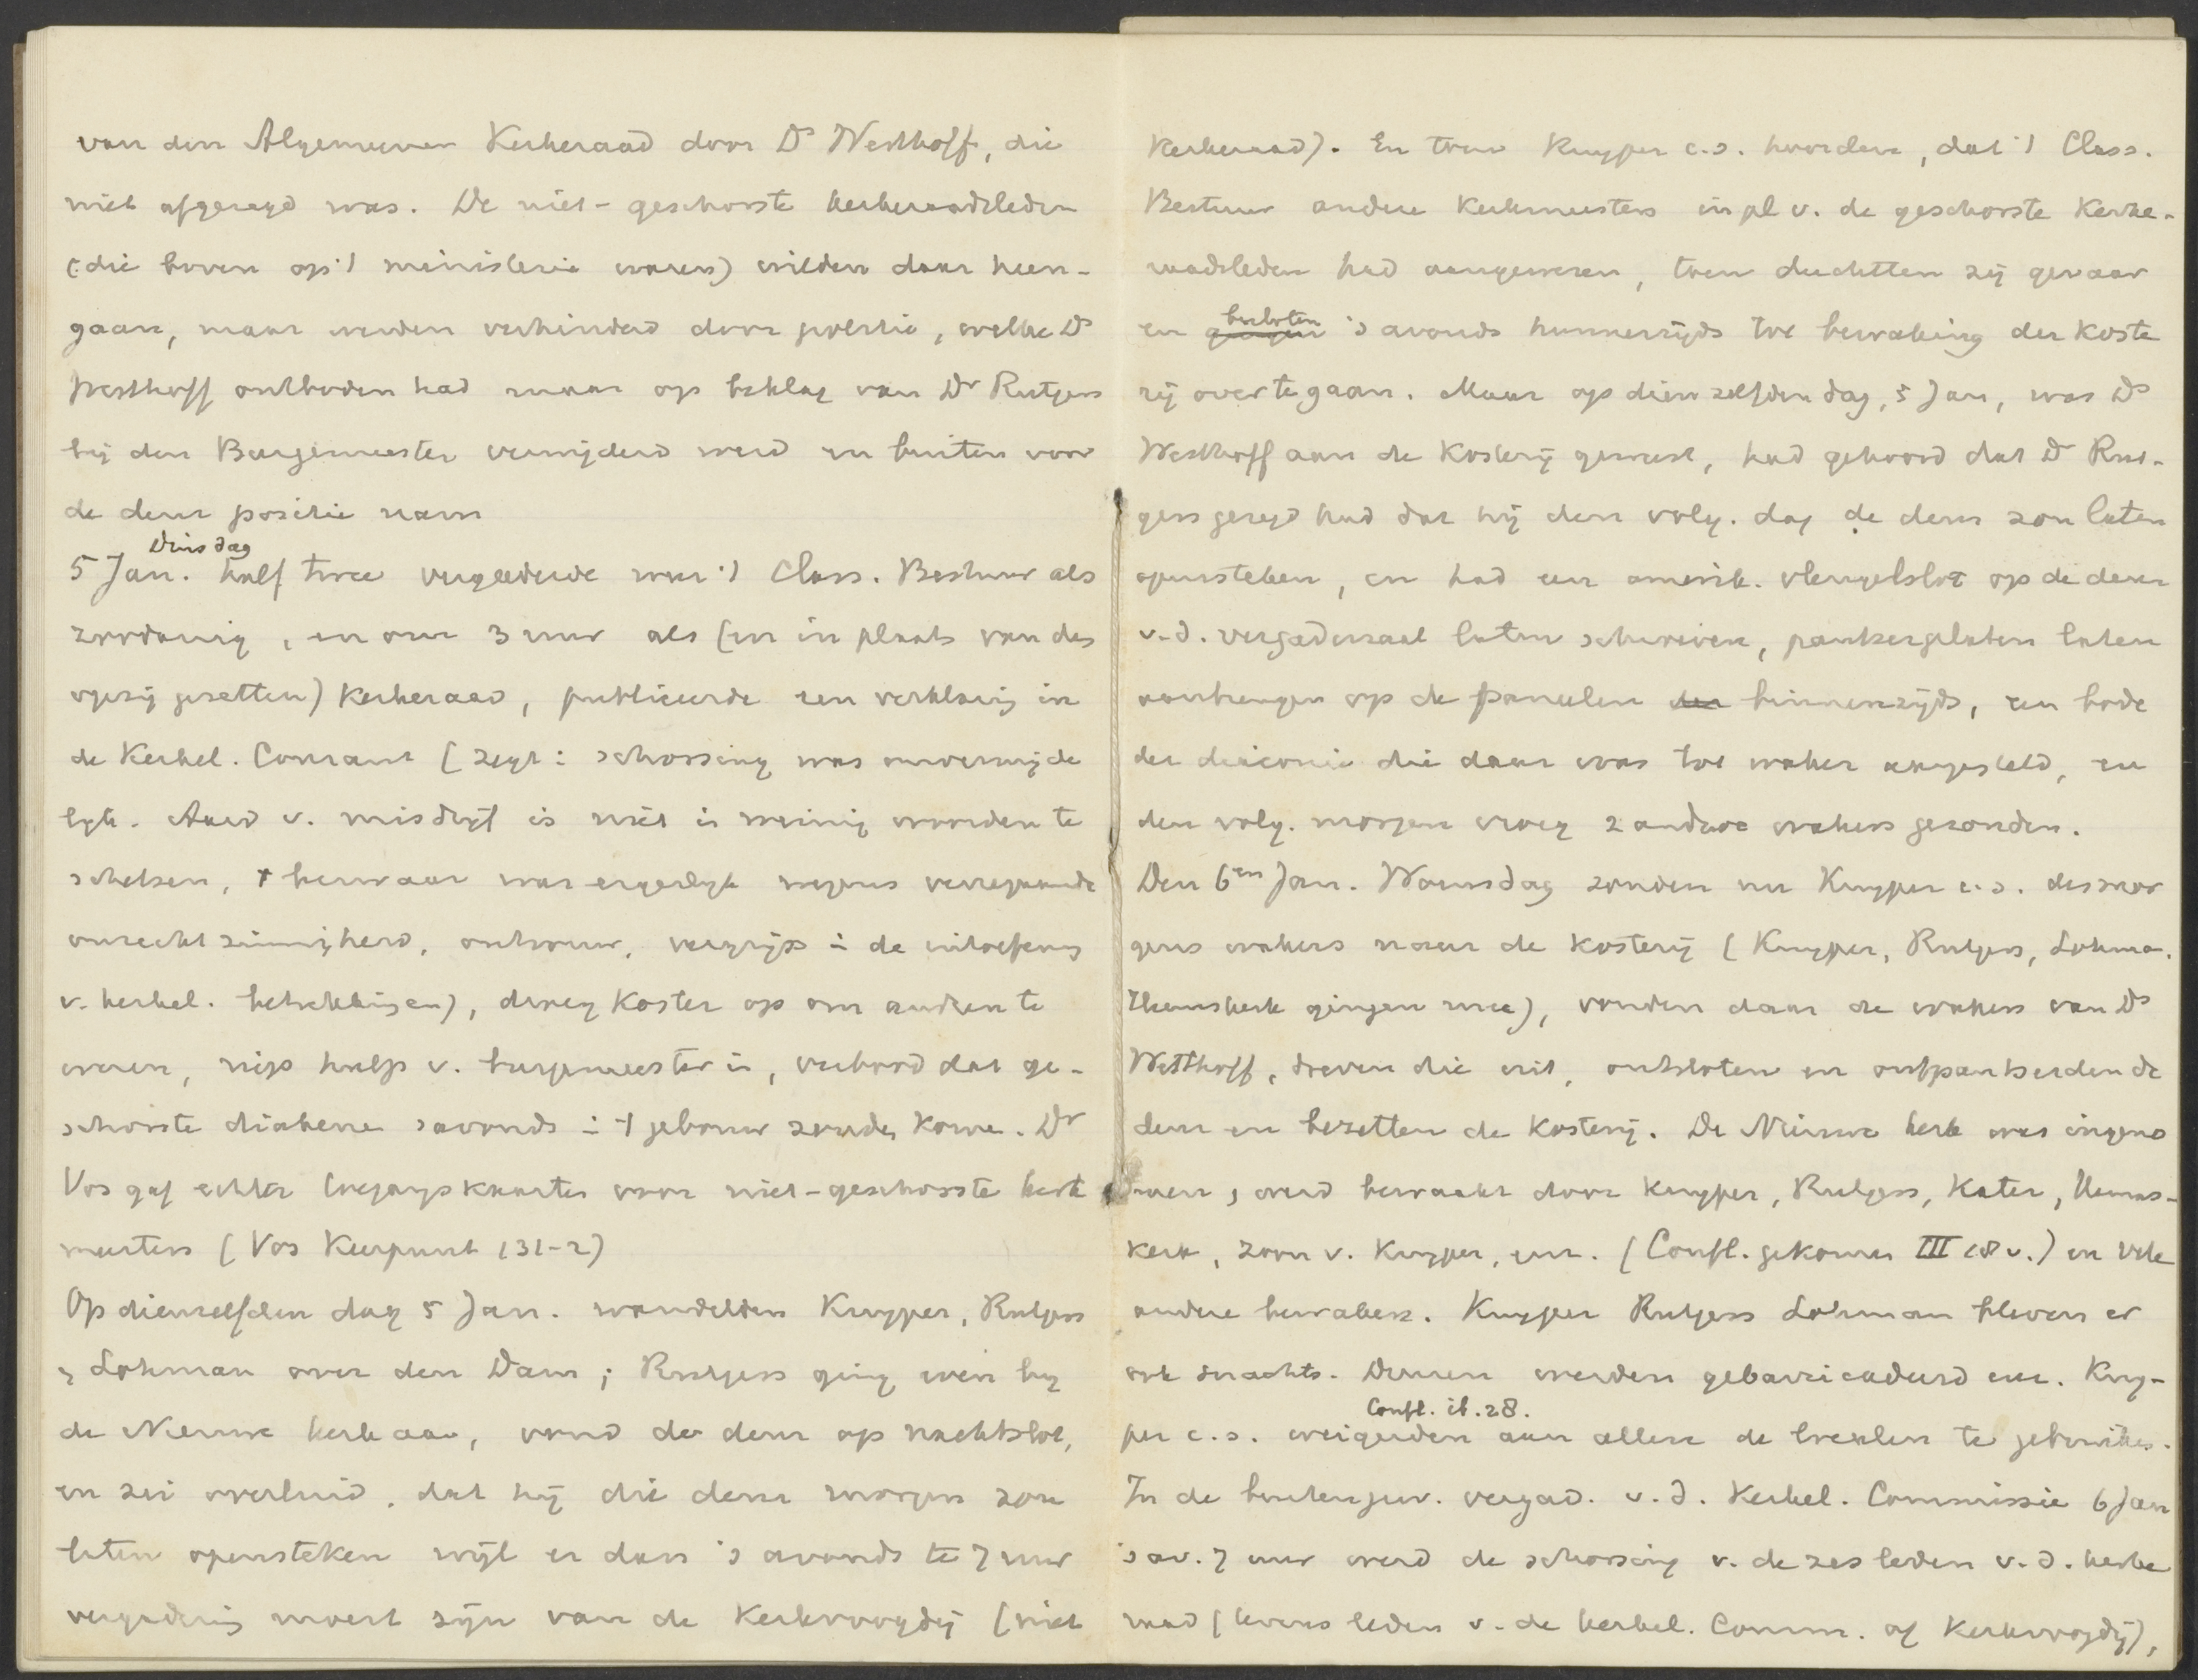 van den Algemeenen Kerkeraad door Ds Westhoff, die
niet afgezegd was. De niet-geschorste kerkeraadsleden
(die boven op 't ministerie waren) wilden daar heen-
gaan, maar werden verhinderd door politie, welke Ds
Westhoff ontboden had maar op beklag van Dr Rutgers
bij den Burgemeester verwijderd werd en buiten voor
de deur positie nam
Dinsdag
5 Jan. half twee vergaderde weer 't Class. Bestuur als
zoodanig, en om 3 uur als (en in plaats van des
opzij gezetten) Kerkeraad, publiceerde een verklaring in
de Kerkel. Courant (zegt: schorsing was onvermijde
lijk. Aard v. misdrijf is niet in weinig woorden te
schetsen, 't bezwaar was ergerlijk wegens verregaande
onrechtzinnigheid, ontrouw, vergrijp in de uitoefening
v. kerkel. betrekkingen), droeg Koster op om anderen te
weren, riep hulp v. burgemeester in, verbood dat ge-
schorste diakenen savonds in 't gebouw zouden komen. Dr
Vos gaf echter toegangskaarten voor niet-geschorste kerk
meesters (Vos Keerpunt 131-2)
Op dienzelfden dag 5 Jan. wandelden Kuyper, Rutgers
en Lohman over den Dam; Rutgers ging even bij
de Nieuwe kerk aan, vond de deur op nachtslot,
en zei overluid, dat hij die deur morgen zou
laten opensteken wijl er dan 's avonds te 7 uur
vergadering moest zijn van de Kerkvoogdij (niet
Kerkeraad). En toen Kuyper c.s. hoorden, dat 't Class.
Bestuur andere Kerkmeesters in pl v. de geschorste Kerke-
raadsleden had aangewezen, toen duchtten zij gevaar
besloten
en gingen 's avonds hunnerzijds tot bewaking der koste
rij over te gaan. Maar op dien zelfden dag, 5 Jan, was Ds
Westhoff aan de Kosterij geweest, had gehoord dat Dr Rut-
gers gezegd had dat hij den volg. dag de deur zou laten
opensteken, en had een amerik. vleugelslot op de deur
v.d. vergaderzaal laten schroeven, pantserplaten laten
aanbrengen op de paneelen binnenzijds, een bode
der diaconie die daar was tot waker aangesteld, en
den volg. morgen vroeg 2 andere wakers gezonden.
Den 6en Jan. Woensdag zonden nu Kuyper c.s. des mor
gens wakers naar de kosterij (Kuyper, Rutgers, Lohman.
Heemskerk gingen mee), vonden daar de wakers van Ds
Westhoff, dreven die uit, ontsloten en ontpantserden de
deur en bezetten de kosterij. De Nieuwe kerk was ingeno
men, werd bewaakt door Kuyper, Rutgers, Kater, Heems-
kerk, zoon v. Kuyper, enz. (Confl. gekomen III 18 v.) en vele
andere bewakers. Kuyper Rutgers Lohman bleven er
ook snachts. Deuren werden gebarricadeerd enz. Kuy-
Confl. ib. 28.
per c.s. weigerden aan allen de lokalen te gebruiken.
In de buitengew. vergad. v.d. Kerkel. Commissie 6 Jan
's av. 7 uur werd de schorsing v. de zes leden v.d. kerke
raad (tevens leden v. de kerkel. Comm. of Kerkvoogdij),